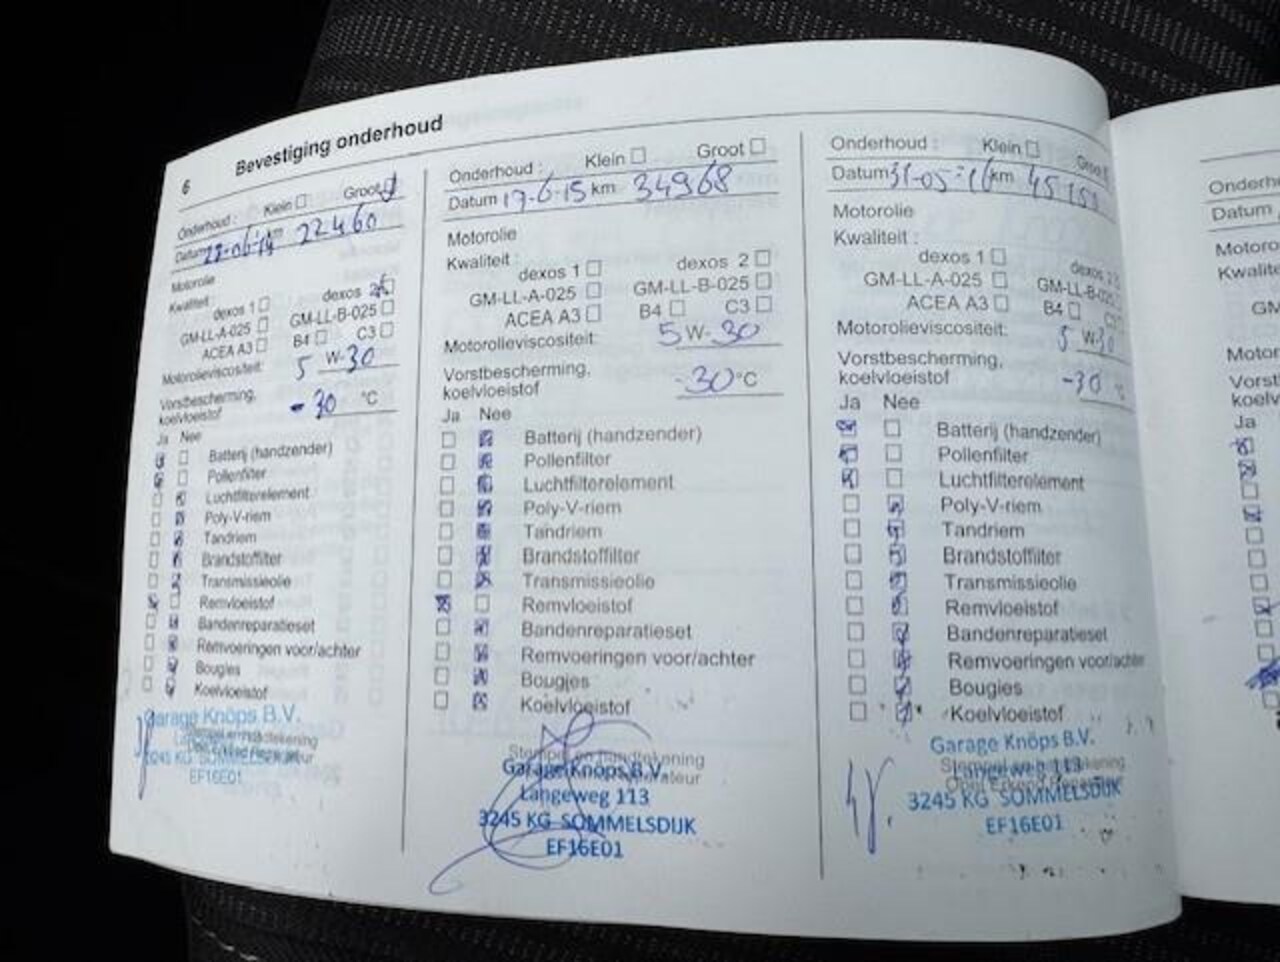 6 Bevestiging onderhoud
Onderhoud : Klein Groot
Datum 22-06-14 km 22460
Motorolie
Kwaliteit :
dexos 1 dexos 2
GM-LL-A-025 GM-LL-B-025
ACEA A3 B4 C3
Motorolieviscositeit: 5 W-30
Vorstbescherming,
koelvloeistof -30 °C
Ja Nee
Batterij (handzender)
Pollenfilter
Luchtfilterelement
Poly-V-riem
Tandriem
Brandstoffilter
Transmissieolie
Remvloeistof
Bandenreparatieset
Remvoeringen voor/achter
Bougies
Koelvloeistof
Garage Knöps B.V.
3245 KG SOMMELSDIJK
EF16E01
Onderhoud : Klein Groot
Datum 17-6-15 km 34968
Motorolie
Kwaliteit :
dexos 1 dexos 2
GM-LL-A-025 GM-LL-B-025
ACEA A3 B4 C3
Motorolieviscositeit: 5 W-30
Vorstbescherming,
koelvloeistof -30 °C
Ja Nee
Batterij (handzender)
Pollenfilter
Luchtfilterelement
Poly-V-riem
Tandriem
Brandstoffilter
Transmissieolie
Remvloeistof
Bandenreparatieset
Remvoeringen voor/achter
Bougies
Koelvloeistof
Stempel en handtekening
Garage Knöps B.V.
Langeweg 113
3245 KG SOMMELSDIJK
EF16E01
Onderhoud : Klein Groot
Datum 31-05-16 km
Motorolie
Kwaliteit :
dexos 1 dexos 2
GM-LL-A-025 GM-LL-B-025
ACEA A3 B4
Motorolieviscositeit: 5 W-30
Vorstbescherming,
koelvloeistof -30 °C
Ja Nee
Batterij (handzender)
Pollenfilter
Luchtfilterelement
Poly-V-riem
Tandriem
Brandstoffilter
Transmissieolie
Remvloeistof
Bandenreparatieset
Remvoeringen voor/achter
Bougies
Koelvloeistof
Garage Knöps B.V.
Langeweg 113
Opel Erkend Reparateur
3245 KG SOMMELSDIJK
EF16E01
Onderh
Datum
Motoro
Kwalite
GM
Motor
Vorst
koelv
Ja